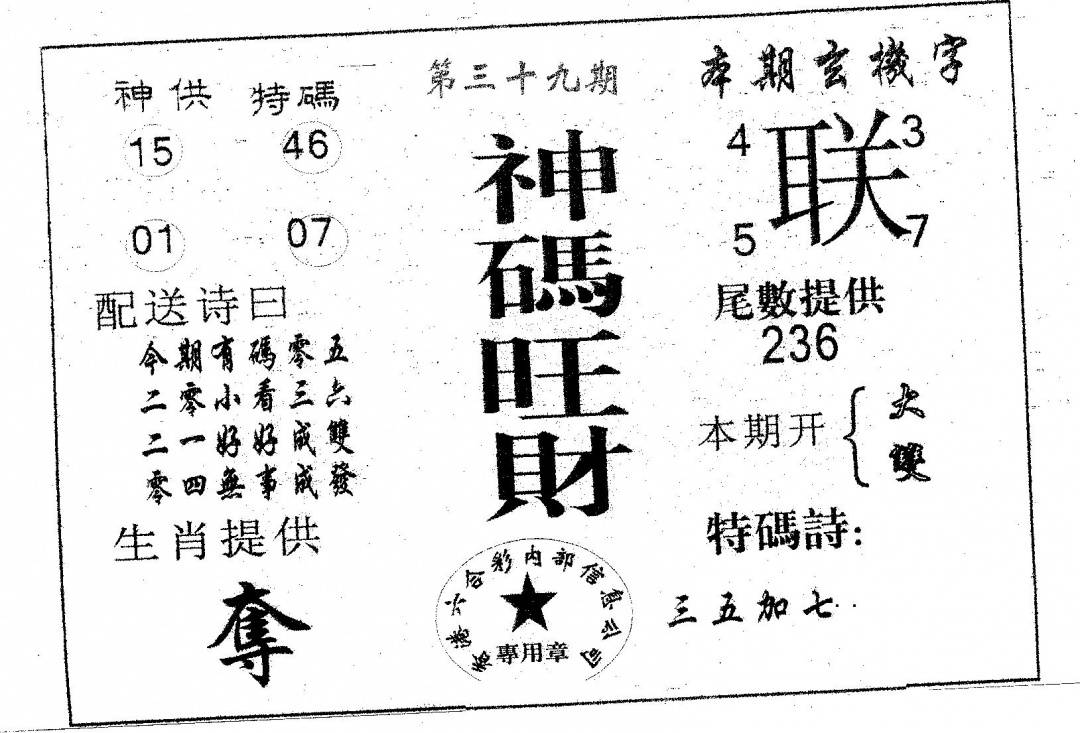 神供 特碼
15 46
01 07
配送诗曰
今期有碼零五
二零小看三六
二一好好成雙
零四無事成發
生肖提供
奪
第三十九期
神碼旺財
香港六合彩内部信息公司
專用章
本期玄機字
4 3
联
5 7
尾數提供
236
本期开{大雙
特碼詩:
三五加七··